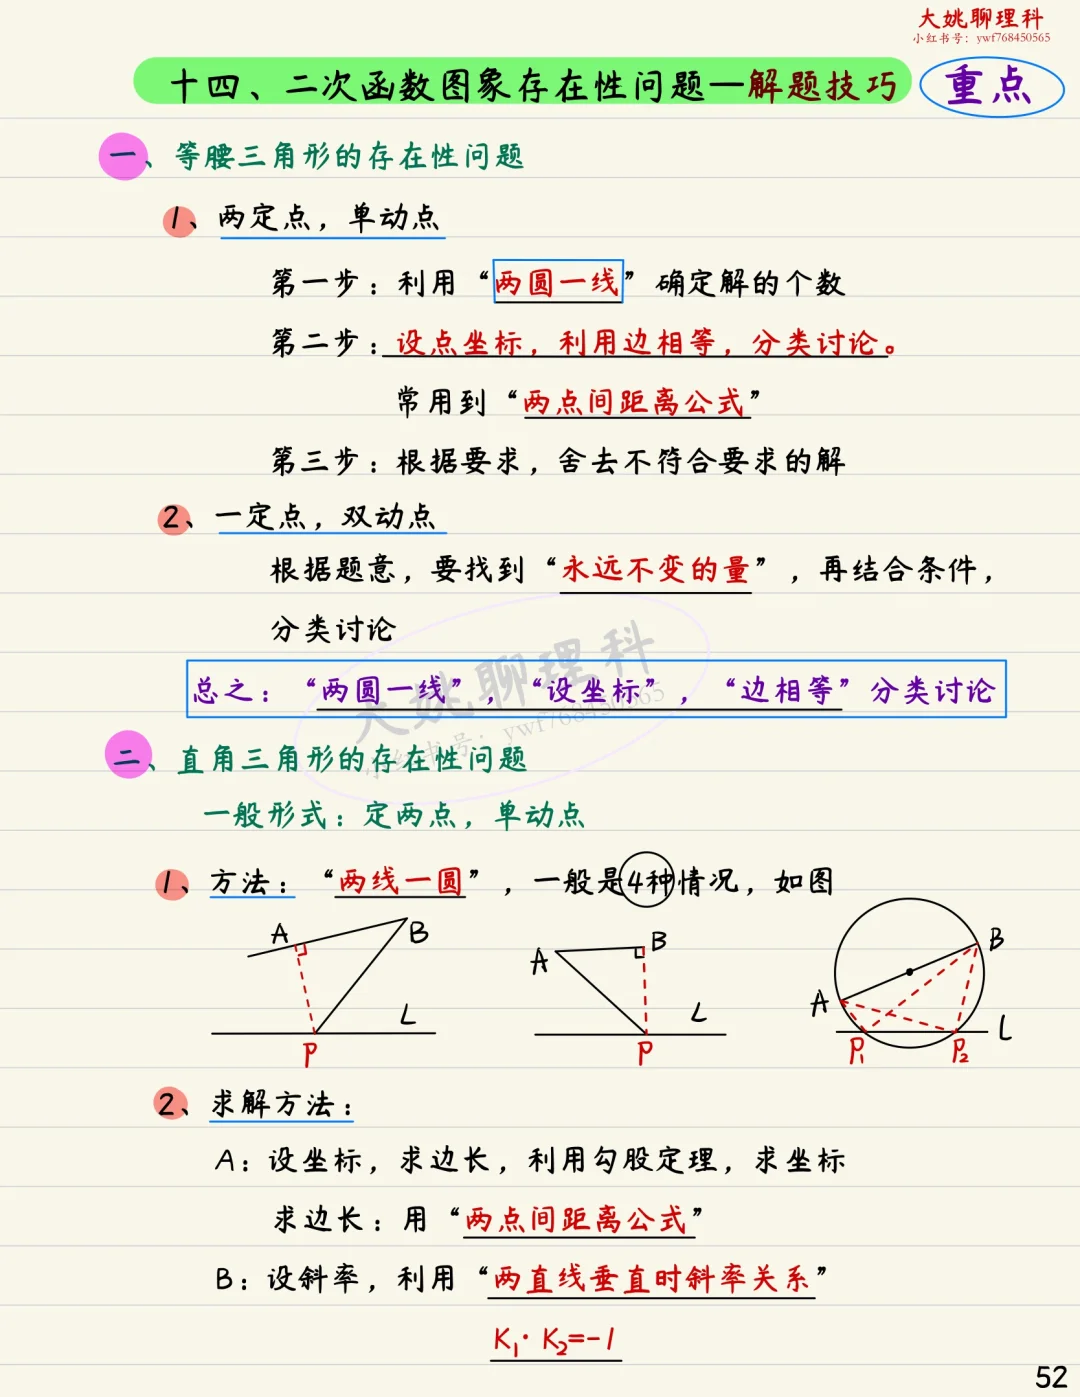 大姚聊理科
小红书号：ywf768450565
十四、二次函数图象存在性问题—解题技巧 重点
一、等腰三角形的存在性问题
1、两定点，单动点
第一步：利用“两圆一线”确定解的个数
第二步：设点坐标，利用边相等，分类讨论。
常用到“两点间距离公式”
第三步：根据要求，舍去不符合要求的解
2、一定点，双动点
根据题意，要找到“永远不变的量”，再结合条件，
分类讨论
大姚聊理科
小红书号：ywf768450565
总之：“两圆一线”，“设坐标”，“边相等”分类讨论
二、直角三角形的存在性问题
一般形式：定两点，单动点
1、方法：“两线一圆”，一般是4种情况，如图
A B L P
A B L P
A B L P₁ P₂
2、求解方法：
A：设坐标，求边长，利用勾股定理，求坐标
求边长：用“两点间距离公式”
B：设斜率，利用“两直线垂直时斜率关系”
K₁·K₂=-1
52